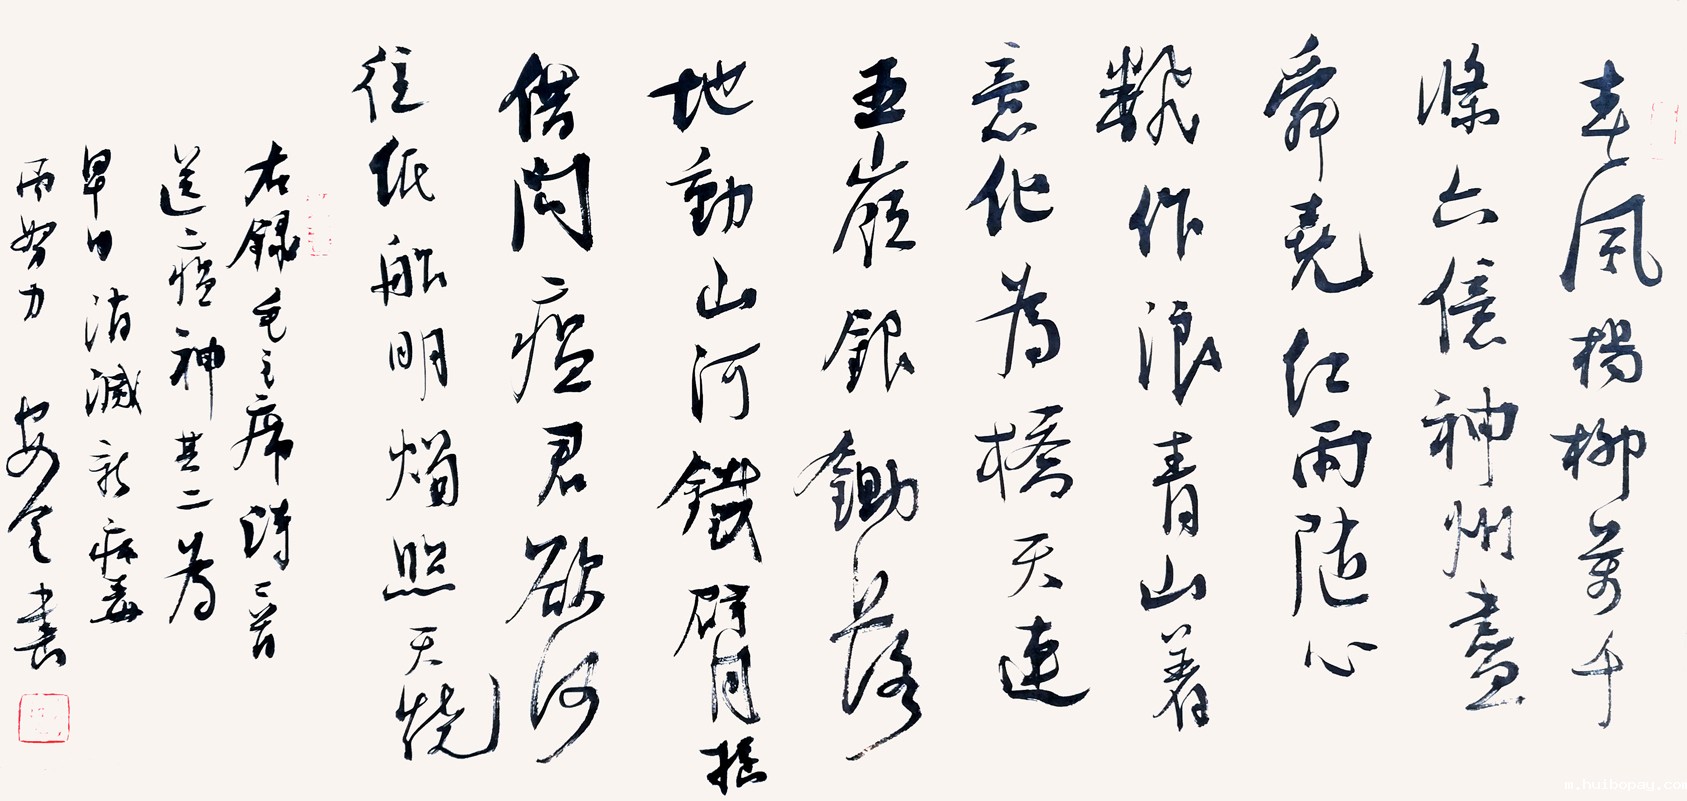 春風楊柳萬千
條六億神州盡
舜堯红雨随心
翻作浪青山着
意化為橋天連
五嶺銀鋤落
地動山河鐵臂摇
借問瘟君欲何
往纸船明燭照天燒
右録毛主席詩首
送瘟神其二為
早日消滅新病毒
而努力 書
m.huibopay.com